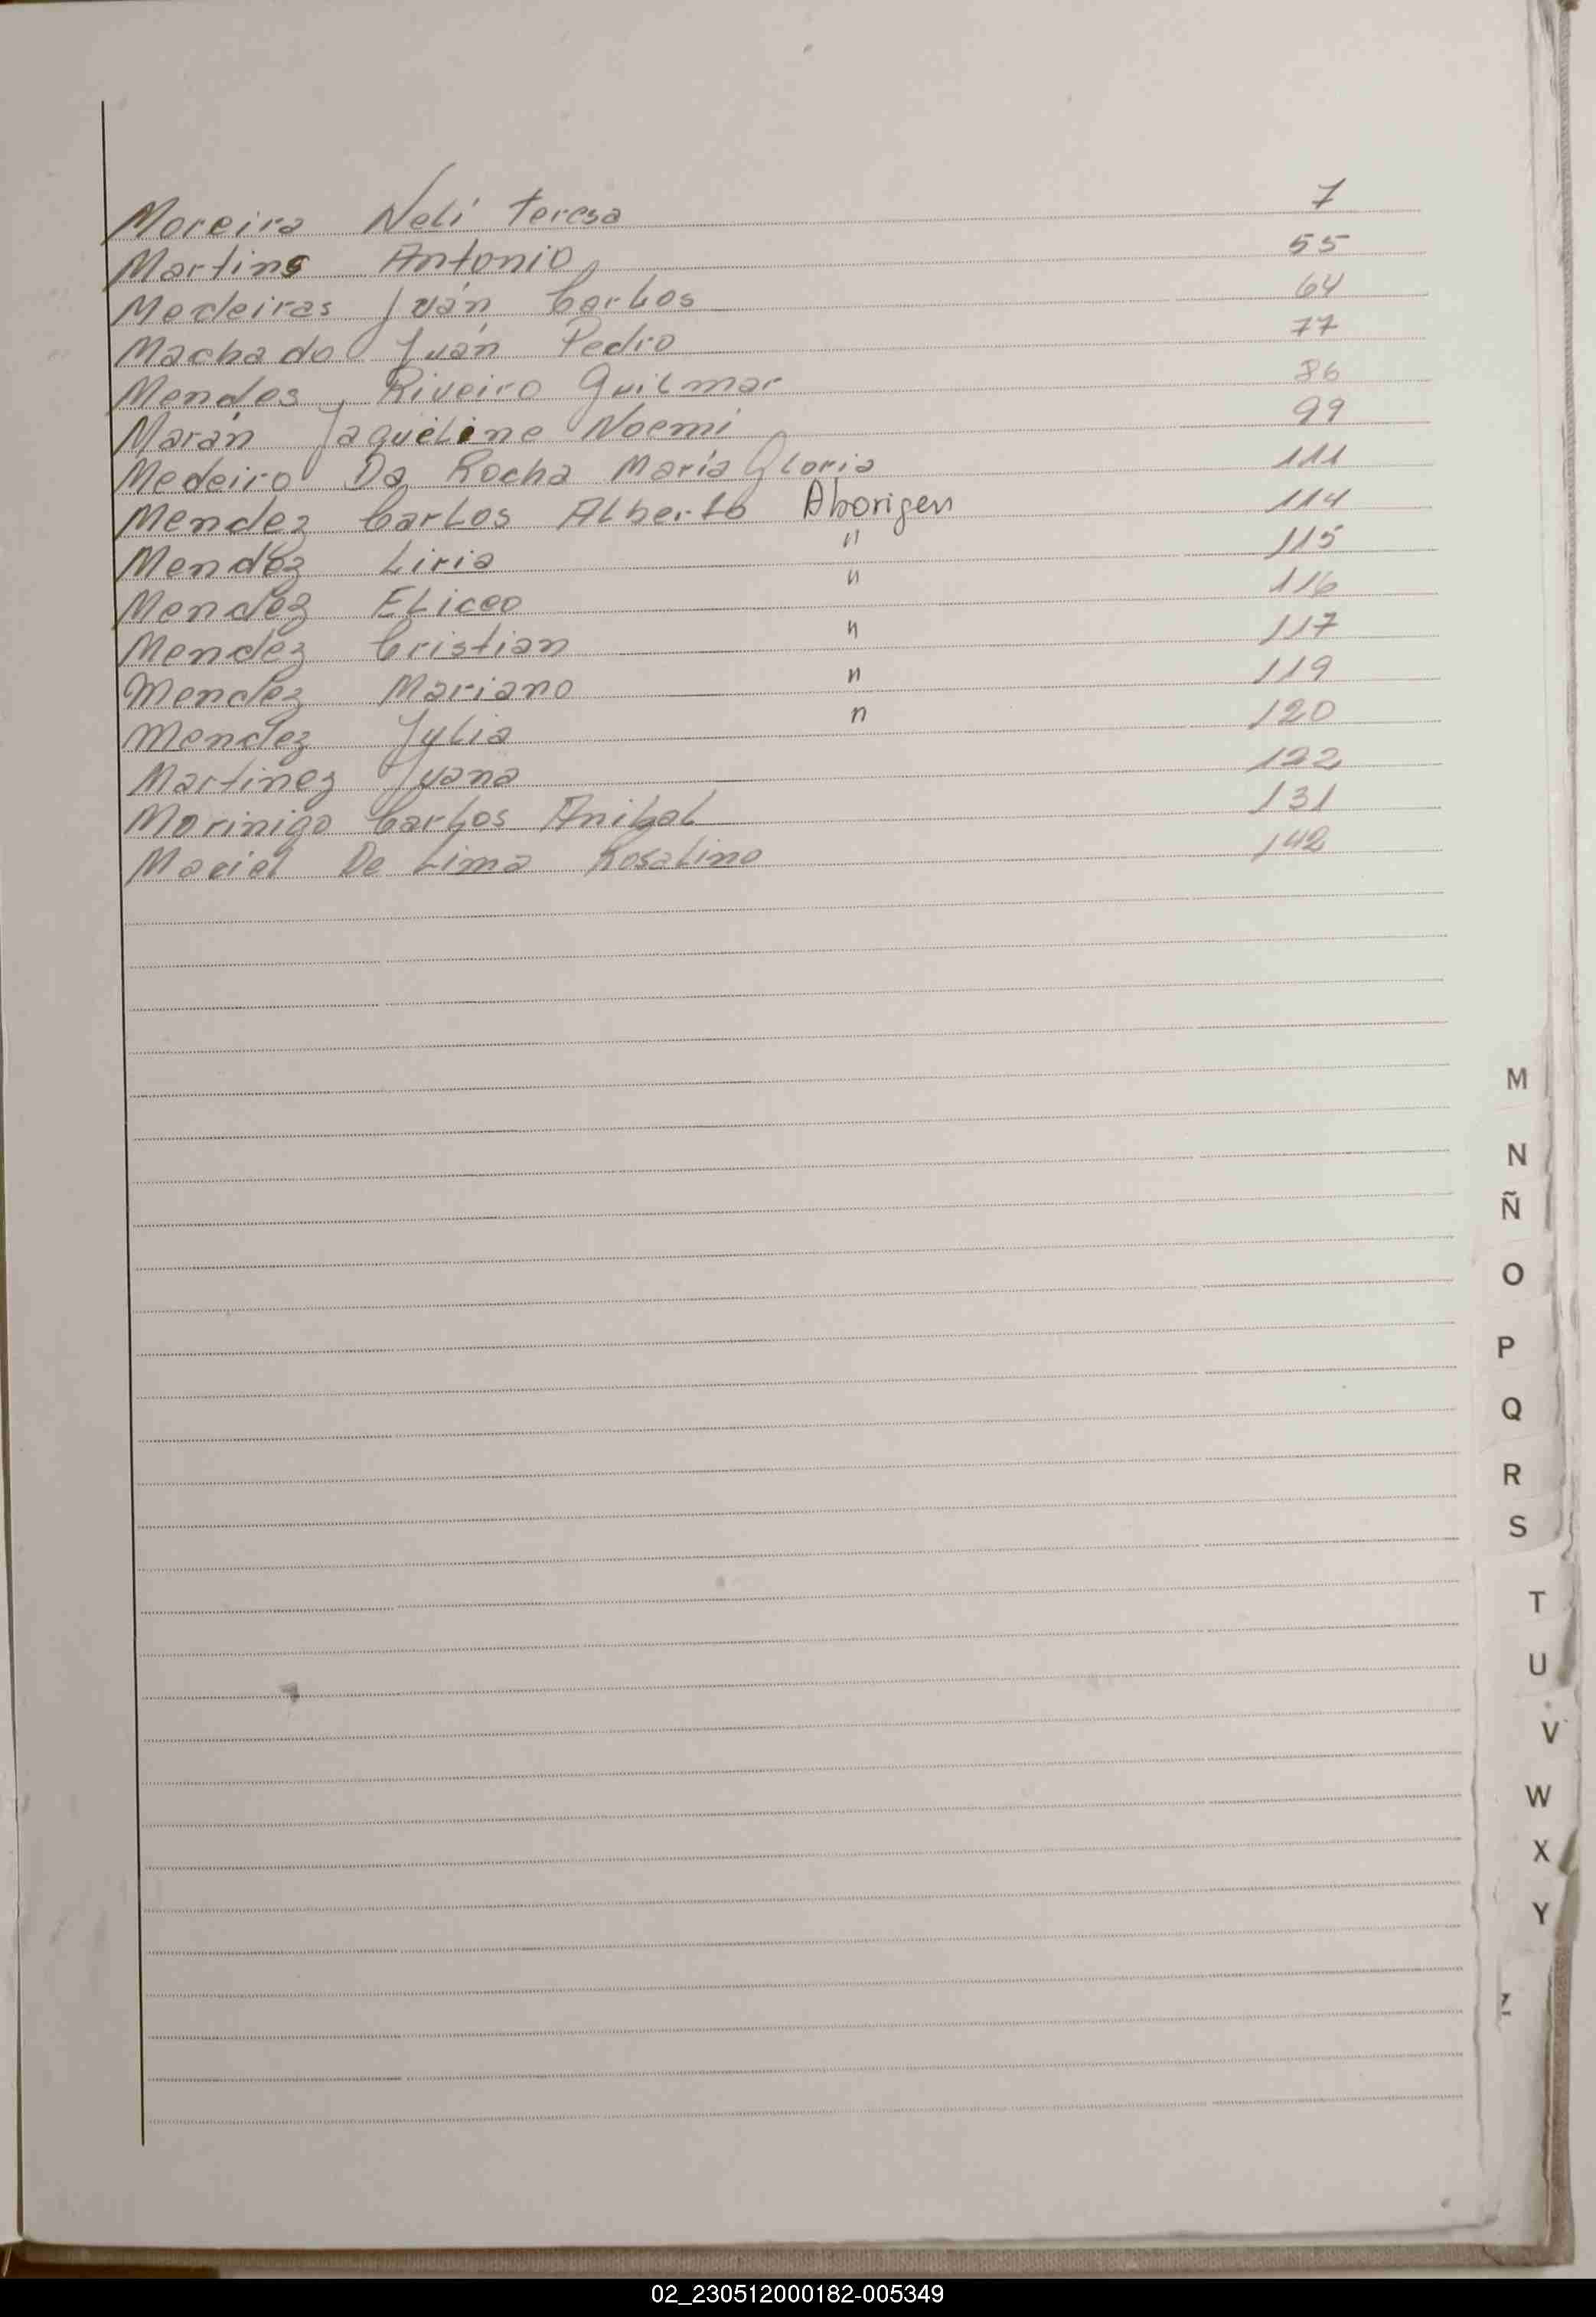 Moreira Neli Teresa 7
Martins Antonio 55
Medeiras Juán Carlos 64
Machado Juán Pedro 77
Mendes Riveiro Guilmar 86
Marán Jaqueline Noemi 99
Medeiro Da Rocha María Gloria 111
Mendez Carlos Alberto Aborigen 114
Mendez Liria " 115
Mendez Eliceo " 116
Mendez Cristian " 117
Mendez Mariano " 119
Mendez Julia " 120
Martinez Juana 122
Morinigo Carlos Anibal 131
Maciel De Lima Rosalino 142
M
N
Ñ
O
P
Q
R
S
T
U
V
W
X
Y
Z
02_230512000182-005349